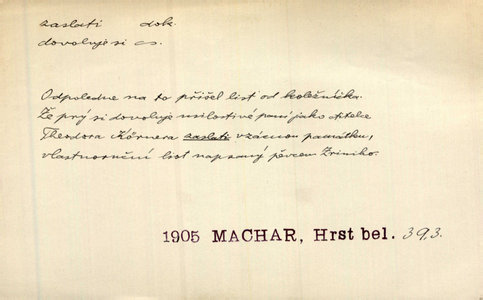 zaslati dok.
dovoluje si cs.
Odpoledne na to přišel list od koležníčka.
Že prý si dovoluje milostivé paní jako ctitelce
Theodora Körnera zaslati vzácnou památku,
vlastnoruční list napsaný pěvcem Zriniho.
1905 MACHAR, Hrst bel. 393.